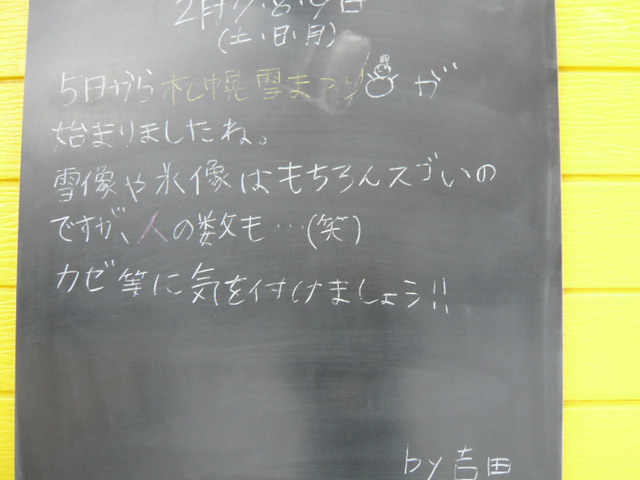 2月7.8.9日
(土・日・月)
5日から札幌雪まつりが
始まりましたね。
雪像や氷像はもちろんスゴいの
ですが、人の数も…(笑)
カゼ等に気を付けましょう!!
by 吉田